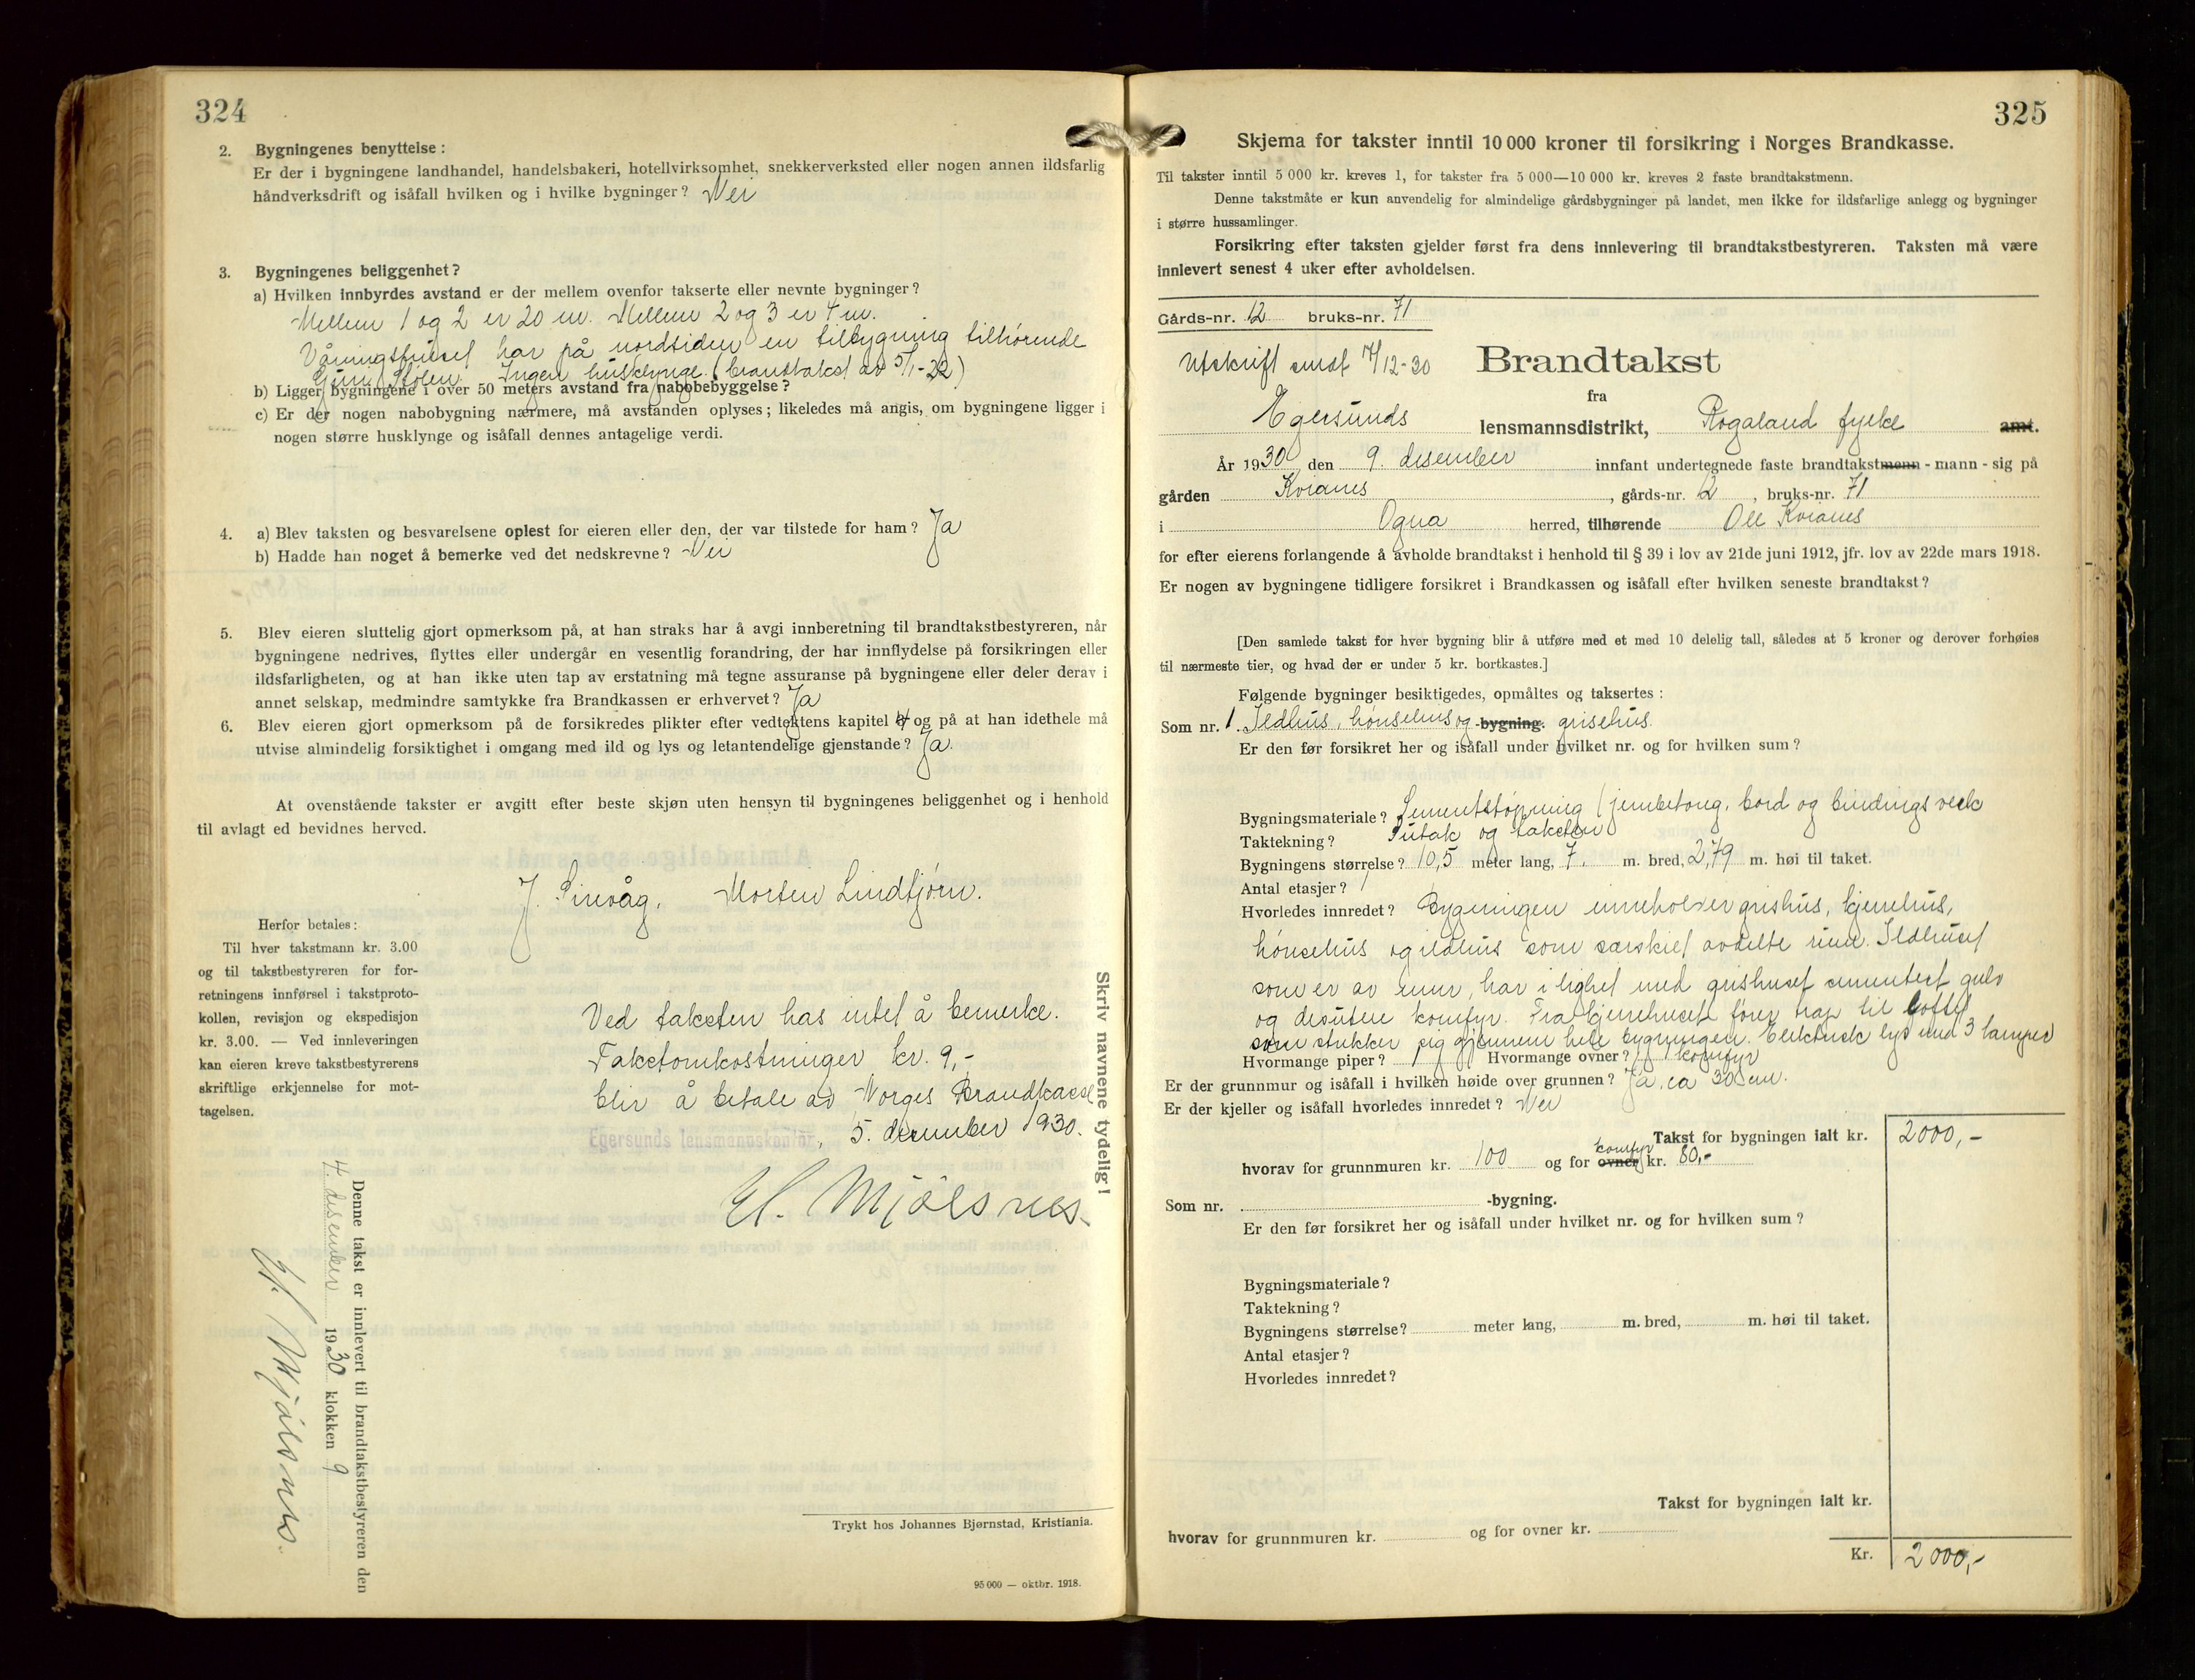 324
2. Bygningenes benyttelse:
Er der i bygningene landhandel, handelsbakeri, hotellvirksomhet, snekkerverksted eller nogen annen ildsfarlig
håndverksdrift og isåfall hvilken og i hvilke bygninger? Nei
3. Bygningenes beliggenhet?
a) Hvilken innbyrdes avstand er der mellem ovenfor takserte eller nevnte bygninger?
Mellem 1 og 2 er 20 m. Mellem 2 og 3 er 4 m.
Våningshuset har på nordsiden en tilbygning tilhørende
Stølen. Ingen husklynge. (brandtakst av 5/1-22)
b) Ligger bygningene i over 50 meters avstand fra nabobebyggelse?
c) Er der nogen nabobygning nærmere, må avstanden oplyses; likeledes må angis, om bygningene ligger i
nogen større husklynge og isåfall dennes antagelige verdi.
4. a) Blev taksten og besvarelsene oplest for eieren eller den, der var tilstede for ham? Ja
b) Hadde han noget å bemerke ved det nedskrevne? Nei
5. Blev eieren sluttelig gjort opmerksom på, at han straks har å avgi innberetning til brandtakstbestyreren, når
bygningene nedrives, flyttes eller undergår en vesentlig forandring, der har innflydelse på forsikringen eller
ildsfarligheten, og at han ikke uten tap av erstatning må tegne assuranse på bygningene eller deler derav i
annet selskap, medmindre samtykke fra Brandkassen er erhvervet? Ja
6. Blev eieren gjort opmerksom på de forsikredes plikter efter vedtektens kapitel 4 og på at han idethele må
utvise almindelig forsiktighet i omgang med ild og lys og letantendelige gjenstande? Ja.
At ovenstående takster er avgitt efter beste skjøn uten hensyn til bygningenes beliggenhet og i henhold
til avlagt ed bevidnes herved.
J. Sirevåg. Morten Lindtjörn.
Herfor betales:
Til hver takstmann kr. 3.00
og til takstbestyreren for for-
retningens innførsel i takstproto-
kollen, revisjon og ekspedisjon
kr. 3.00. — Ved innleveringen
kan eieren kreve takstbestyrerens
skriftlige erkjennelse for mot-
tagelsen.
Ved taksten has intet å bemerke.
Takstomkostninger kr. 9,-
blir å betale av Norges Brandkasse
Egersunds lensmannskontor, 5. desember 1930.
H. Mjølsnes.
Skriv navnene tydelig!
Denne takst er innlevert til brandtakstbestyreren den
4. desember 1930 klokken 9
H. Mjølsnes.
Trykt hos Johannes Bjørnstad, Kristiania.
95 000 — oktbr. 1918.
325
Skjema for takster inntil 10 000 kroner til forsikring i Norges Brandkasse.
Til takster inntil 5 000 kr. kreves 1, for takster fra 5 000—10 000 kr. kreves 2 faste brandtakstmenn.
Denne takstmåte er kun anvendelig for almindelige gårdsbygninger på landet, men ikke for ildsfarlige anlegg og bygninger
i større hussamlinger.
Forsikring efter taksten gjelder først fra dens innlevering til brandtakstbestyreren. Taksten må være
innlevert senest 4 uker efter avholdelsen.
Gårds-nr. 12 bruks-nr. 71
Utskrift sendt /12-30
Brandtakst
fra
Egersunds lensmannsdistrikt, Rogaland fylke amt.
År 1930 den 9. desember innfant undertegnede faste brandtakstmenn - mann - sig på
gården Kvianes, gårds-nr. 12, bruks-nr. 71
i Ogna herred, tilhørende Ole Kvianes
for efter eierens forlangende å avholde brandtakst i henhold til § 39 i lov av 21de juni 1912, jfr. lov av 22de mars 1918.
Er nogen av bygningene tidligere forsikret i Brandkassen og isåfall efter hvilken seneste brandtakst?
[Den samlede takst for hver bygning blir å utføre med et med 10 delelig tall, således at 5 kroner og derover forhøies
til nærmeste tier, og hvad der er under 5 kr. bortkastes.]
Følgende bygninger besiktigedes, opmåltes og taksertes:
Som nr. 1. Ildhus, hönsehus og -bygning. grisehus.
Er den før forsikret her og isåfall under hvilket nr. og for hvilken sum?
Bygningsmateriale? Sementstöpning (jernbetong, bord og bindingsverk
Taktekning? Sutak og taksten
Bygningens størrelse? 10,5 meter lang, 7. m. bred, 2,79 m. høi til taket.
Antal etasjer? 1
Hvorledes innredet? Bygningen inneholder grishus, kjerrehus,
hönsehus og ildhus som særskilt avdelte rum. Ildhuset
som er av mur, har i lighet med grishuset sementert gulv
og desuten komfyr. Fra kjerrehuset fører trap til loftet
som strekker sig gjennem hele bygningen. Elektrisk lys med 3 lamper
Hvormange piper? 1 Hvormange ovner? 1 komfyr
Er der grunnmur og isåfall i hvilken høide over grunnen? Ja, ca 30 cm.
Er der kjeller og isåfall hvorledes innredet? Nei
Takst for bygningen ialt kr. 2000,-
hvorav for grunnmuren kr. 100 og for ovner komfyr kr. 80,-
Som nr. -bygning.
Er den før forsikret her og isåfall under hvilket nr. og for hvilken sum?
Bygningsmateriale?
Taktekning?
Bygningens størrelse? meter lang, m. bred, m. høi til taket.
Antal etasjer?
Hvorledes innredet?
Takst for bygningen ialt kr.
hvorav for grunnmuren kr. og for ovner kr.
Kr. 2000,-